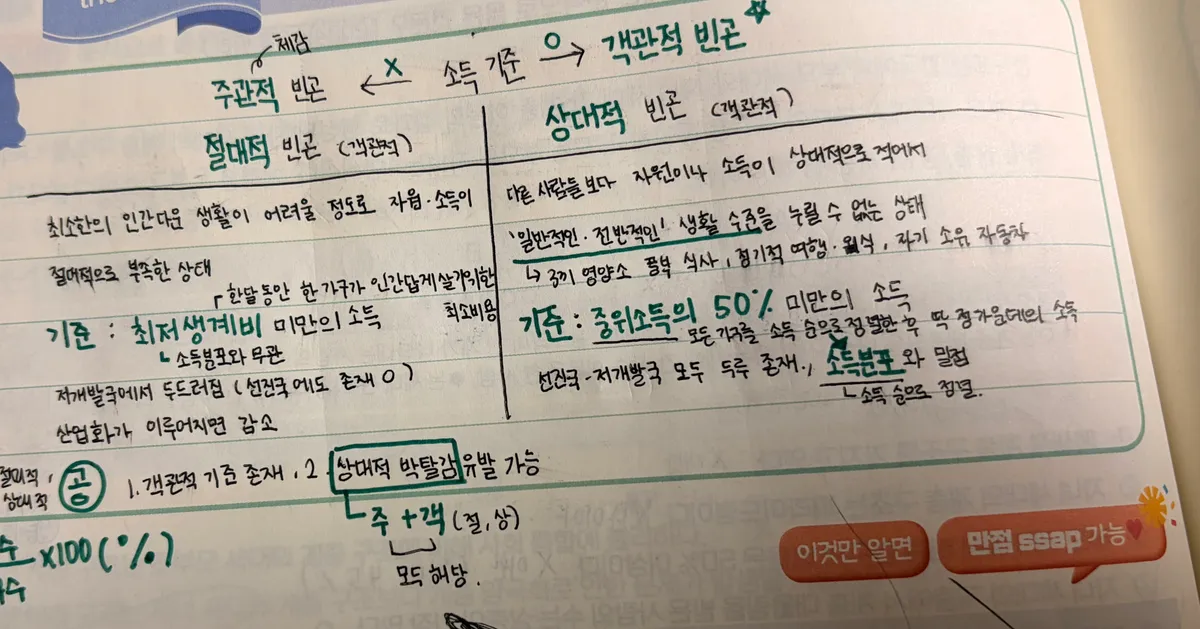 the
체감
주관적 빈곤 ← X 소득 기준 O → 객관적 빈곤 ☆
절대적 빈곤 (객관적)
최소한의 인간다운 생활이 어려울 정도로 자원·소득이
절대적으로 부족한 상태
한달동안 한가구가 인간답게살기위한
최소비용
기준 : 최저생계비 미만의 소득
↳ 소득분포와 무관
저개발국에서 두드러짐 (선진국에도 존재 O)
산업화가 이루어지면 감소
상대적 빈곤 (객관적)
다른 사람들보다 자원이나 소득이 상대적으로 적에서
'일반적인·전반적인' 생활 수준을 누릴 수 없는 상태
↳ 3끼 영양소 풀복 식사, 정기적 여행·외식, 자기 소유 자동차
기준 : 중위소득의 50% 미만의 소득
모든 가구를 소득 순으로 정렬한 후 딱 정가운데의 소득
선진국·저개발국 모두 두루 존재., 소득분포와 밀접
↳ 소득 순으로 정렬.
절대적,
상대적
공
1. 객관적 기준 존재, 2. 상대적 박탈감 유발 가능
↳ 주 + 객 (절, 상)
모두 해당.
수 x100 (%)
수
이것만 알면
만점 ssap 가능♥